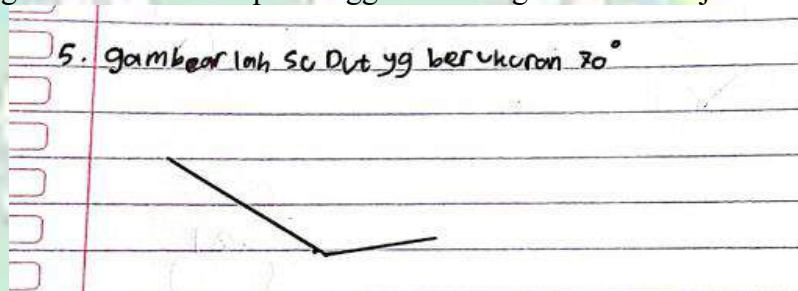 5. gambearlah scDut yg berukuran 70°